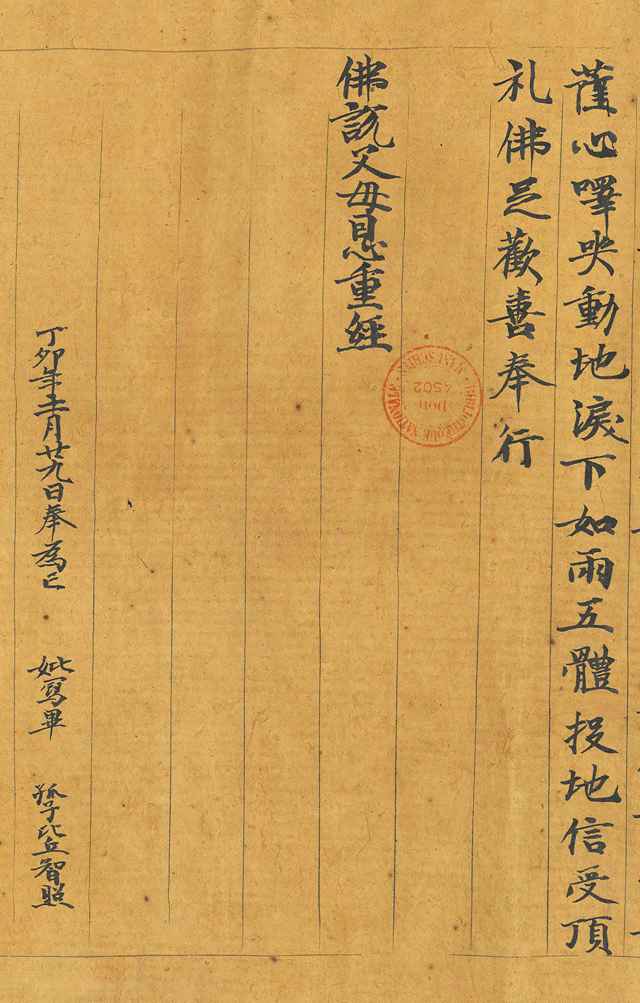 薩心嘷哭動地淚下如雨五體投地信受頂
礼佛足歡喜奉行
佛說父母恩重經
丁卯年十一月廿九日奉為亡 妣寫畢 孤子比丘智照
BIBLIOTHÈQUE NATIONALE
DON
4502
MANUSCRITS